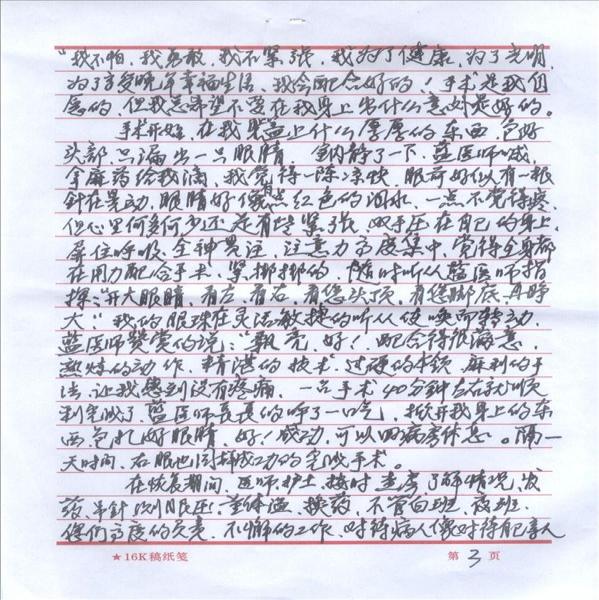 "我不怕,我勇敢,我不紧张,我为了健康,为了光明,
为了享受晚年幸福生活,我会配合好的!手术是我自
愿的,但我总希望不要在我身上出什么意外是好的。
手术开始,在我身盖上什么厚厚的东西,包好
头部,只漏出一只眼睛,躺静了一下,蓝医师喊,
拿麻药给我滴,我觉得一阵凉快,眼前好似有一眼
针在晃动,眼睛好像有点红色的泪水,一点不觉得疼,
但心里何多何少还是有些紧张,双手压在自己的身上,
屏住呼吸,全神贯注,注意力高度集中,觉得全身都
在用力配合手术,紧绑绑的,随时听从蓝医师指
挥:"开大眼睛,看左,看右,看您头顶,看您脚底,再睁
大!"我的眼珠在灵活敏捷的听从使唤而转动,
蓝医师赞赏的说:"飘亮,好!配合得很满意,
熟炼的动作,精湛的技术,过硬的本领,麻利的手
法,让我感到没有疼痛,一只手术40分钟左右就顺
利完成了,蓝医师长长的呼了一口气,掀开我身上的东
西包扎好眼睛,好!成功,可以回病房休息。隔一
天时间,右眼也同样成功的完成手术。
在恢复期间,医师、护士,按时查房了解情况,发
药、吊针、测眼压、量体温、换药,不管白班、夜班,
他们高度的负责,不懈的工作,对待病人像对待自己亲人
★16K稿纸笺 第3页